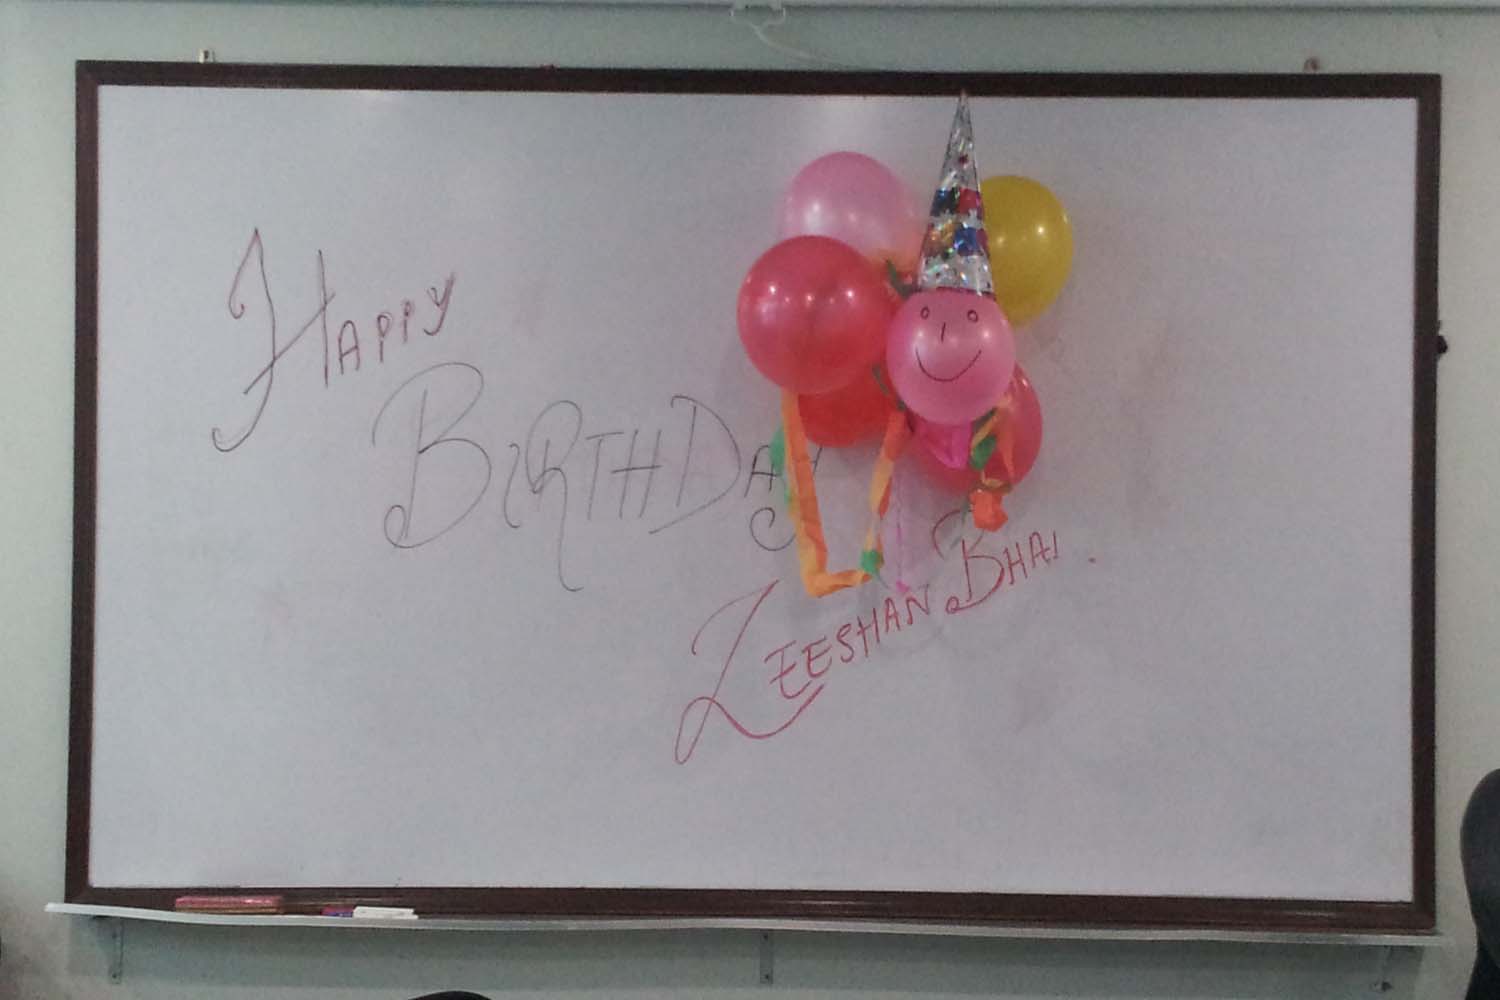 Happy
BIRTHDAY
ZEESHAN BHAI.